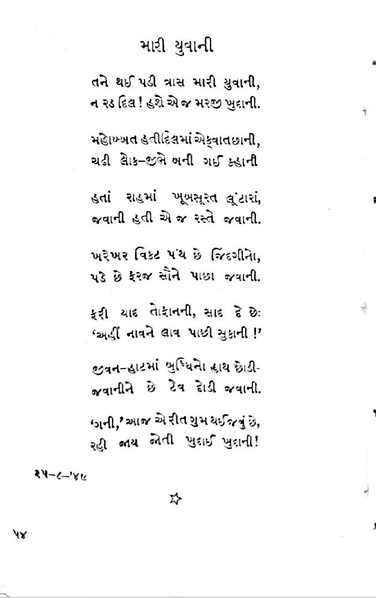 મારી યુવાની
તને થઈ પડી ત્રાસ મારી યુવાની,
ન રડ દિલ! હશે એ જ મરજી ખુદાની.
મહોબ્બત હતી દિલમાં એક વાત છાની,
ચઢી લોક-જીભે બની ગઈ ક્હાની
હતાં રાહમાં ખૂબસૂરત લૂંટારાં,
જવાની હતી એ જ રસ્તે જવાની.
ખરેખર વિકટ પંથ છે જિંદગીનો,
પડે છે ફરજ સૌને પાછા જવાની.
ફરી યાદ તોફાનની, સાદ દે છેઃ
‘અહીં નાવને લાવ પાછી સુકાની !’
જીવન-હાટમાં બુધ્ધિનો હાથ છોડી-
જવાનીને છે ટેવ દોડી જવાની.
‘ગની,’ આજ એ રીત ગુમ થઈ જવું છે,
રહી જાય જોતી ખુદાઈ ખુદાની!
૨૫-૮-’૪૯
૫૪